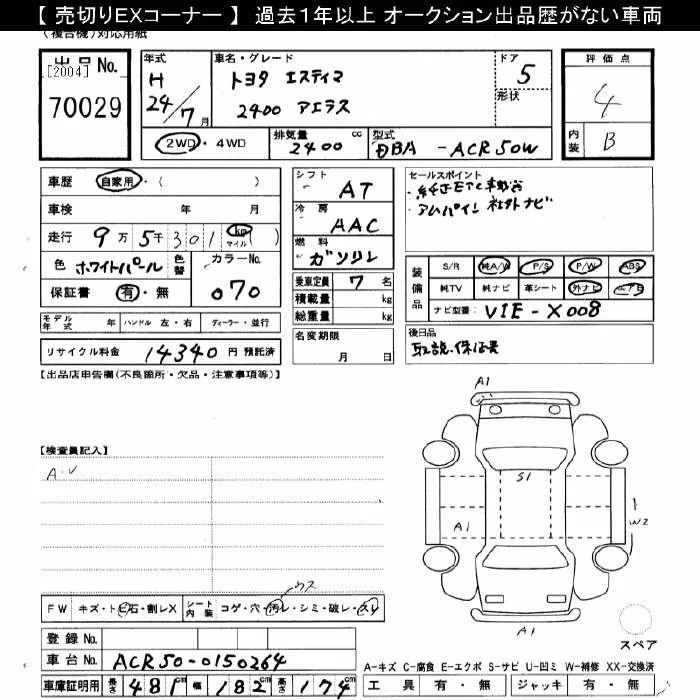 【 売切りEXコーナー 】 過去１年以上 オークション出品歴がない車両
(複合機) 対応用紙
出品 No.
[2004]
70029
年式
H
24/7月
車名・グレード
トヨタ エスティマ
2400 アエラス
ドア
5
形状
評価点
4
内装
B
2WD・4WD
排気量
2400 cc
型式
DBA -ACR50W
車歴 自家用・( )
車検 年 月
走行 9万5千301 km マイル ( )
色 ホワイトパール 色替 カラーNo.
保証書 有・無 070
モデル年式 年 ハンドル 左・右 ディーラー・並行
リサイクル料金 14340 円 預託済
シフト AT
冷房 AAC
燃料 ガソリン
乗車定員 7 名
積載量 kg
総重量 kg
名変期限
月 日
セールスポイント
・純正ETC車載器
・アムパイン 社外ナビ
装備品
S/R 純A/W P/S P/W ABS
純TV 純ナビ 革シート 外ナビ エアB
ナビ型番: VIE-X008
後日品
取説.保証書
【出品店申告欄(不良箇所・欠品・注意事項等)】
【検査員記入】
A・U
A1
S1
A1
W2
A1
スペア
ウス
FW キズ・トビ石・割レX シート内装 コゲ・穴・汚レ・シミ・破レ・スレ
登録 No.
車台 No. ACR50-0150264
車庫証明用 長さ 481cm 幅 182cm 高さ 174cm
A-キズ C-腐食 E-エクボ S-サビ U-凹ミ W-補修 XX-交換済
工具 有・無 ジャッキ 有・無